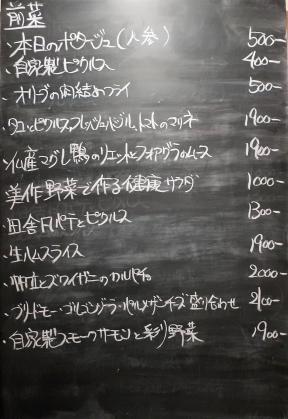 前菜
・本日のポタージュ(人参) 500-
・自家製ピクルス 400-
・オリーブの肉詰めフライ 500-
・タコ・ピクルス・フレッシュバジル、トマトのマリネ 1900-
・仏産マグレ鴨のリエットとフォアグラのムース 1900-
・美作野菜で作る健康サラダ 1000-
・田舎風パテとピクルス 1300-
・生ハムスライス 1900-
・帆立とズワイガニのカルパッチョ 2000-
・ブリ・ド・モー・ゴルゴンゾーラ・パルメザンチーズ盛り合わせ 2100-
・自家製スモークサーモンと彩り野菜 1900-